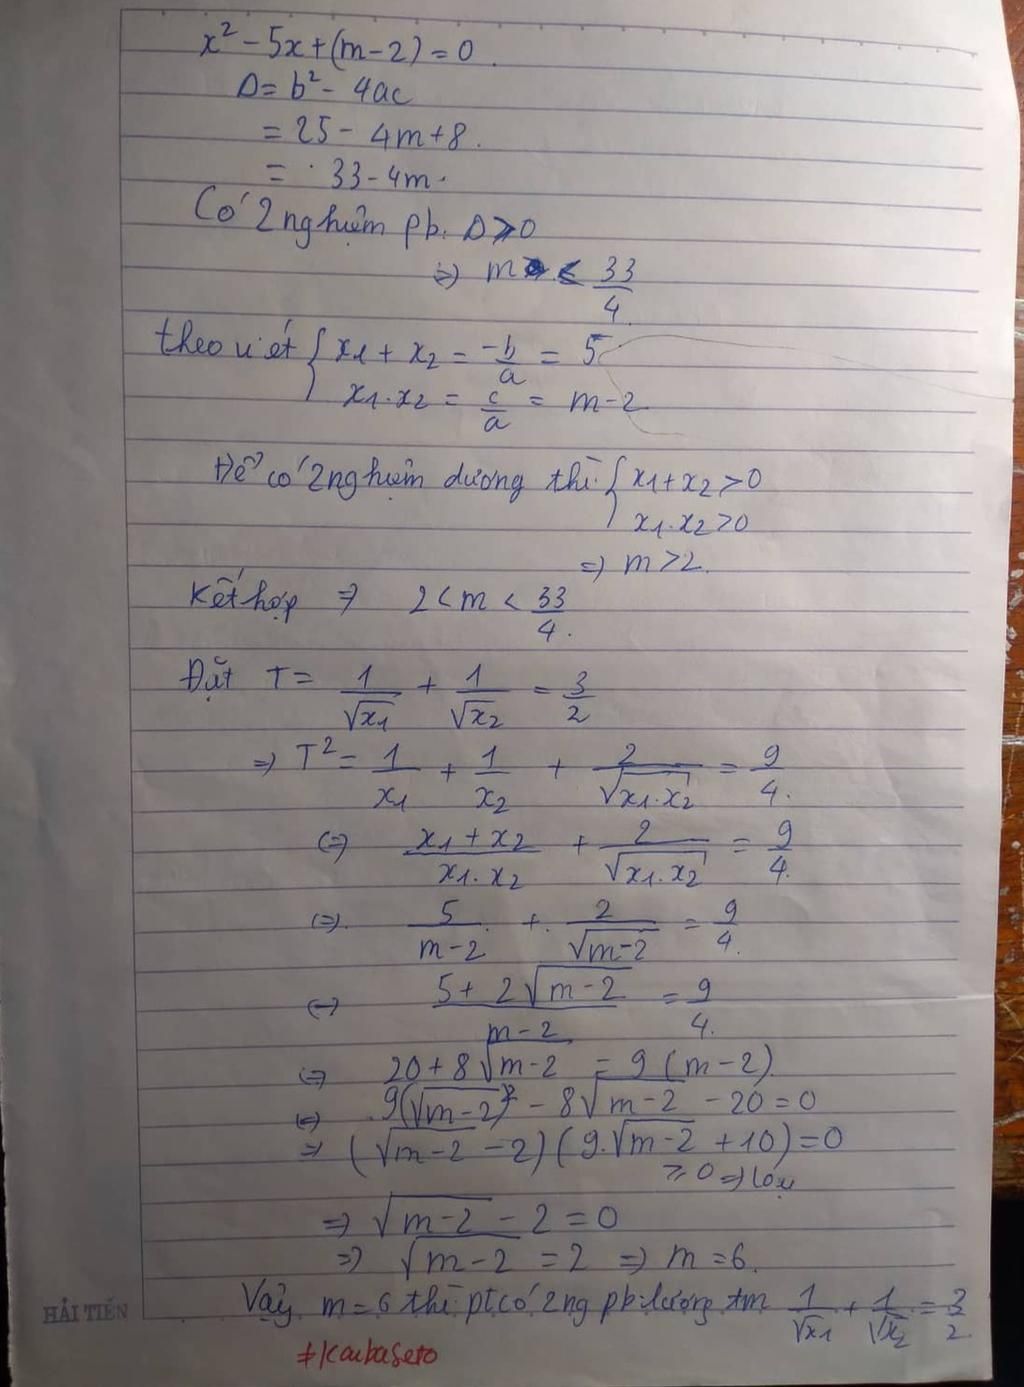 x² - 5x + (m - 2) = 0.
Δ = b² - 4ac
= 25 - 4m + 8.
= 33 - 4m.
Có 2 nghiệm pb. Δ > 0
=> m < 33/4.
theo vi ét { x1 + x2 = -b/a = 5
x1.x2 = c/a = m - 2
Để có 2 nghiệm dương thì { x1 + x2 > 0
x1.x2 > 0
=> m > 2.
Kết hợp => 2 < m < 33/4.
Đặt T = 1/√x1 + 1/√x2 = 3/2
=> T² = 1/x1 + 1/x2 + 2/√x1.x2 = 9/4.
(=) (x1 + x2)/(x1.x2) + 2/√x1.x2 = 9/4.
(=). 5/(m-2) + 2/√m-2 = 9/4.
(=) (5 + 2√m-2)/(m-2) = 9/4.
(=) 20 + 8√m-2 = 9(m-2)
(=) 9(√m-2)² - 8√m-2 - 20 = 0
=> (√m-2 - 2)(9.√m-2 + 10) = 0
≥ 0 => loại
=> √m-2 - 2 = 0
=> √m-2 = 2 => m = 6.
Vậy m = 6 thì pt có 2 ng pb dương tm 1/√x1 + 1/√x2 = 3/2.
HẢI TIẾN
#Kaibaseto